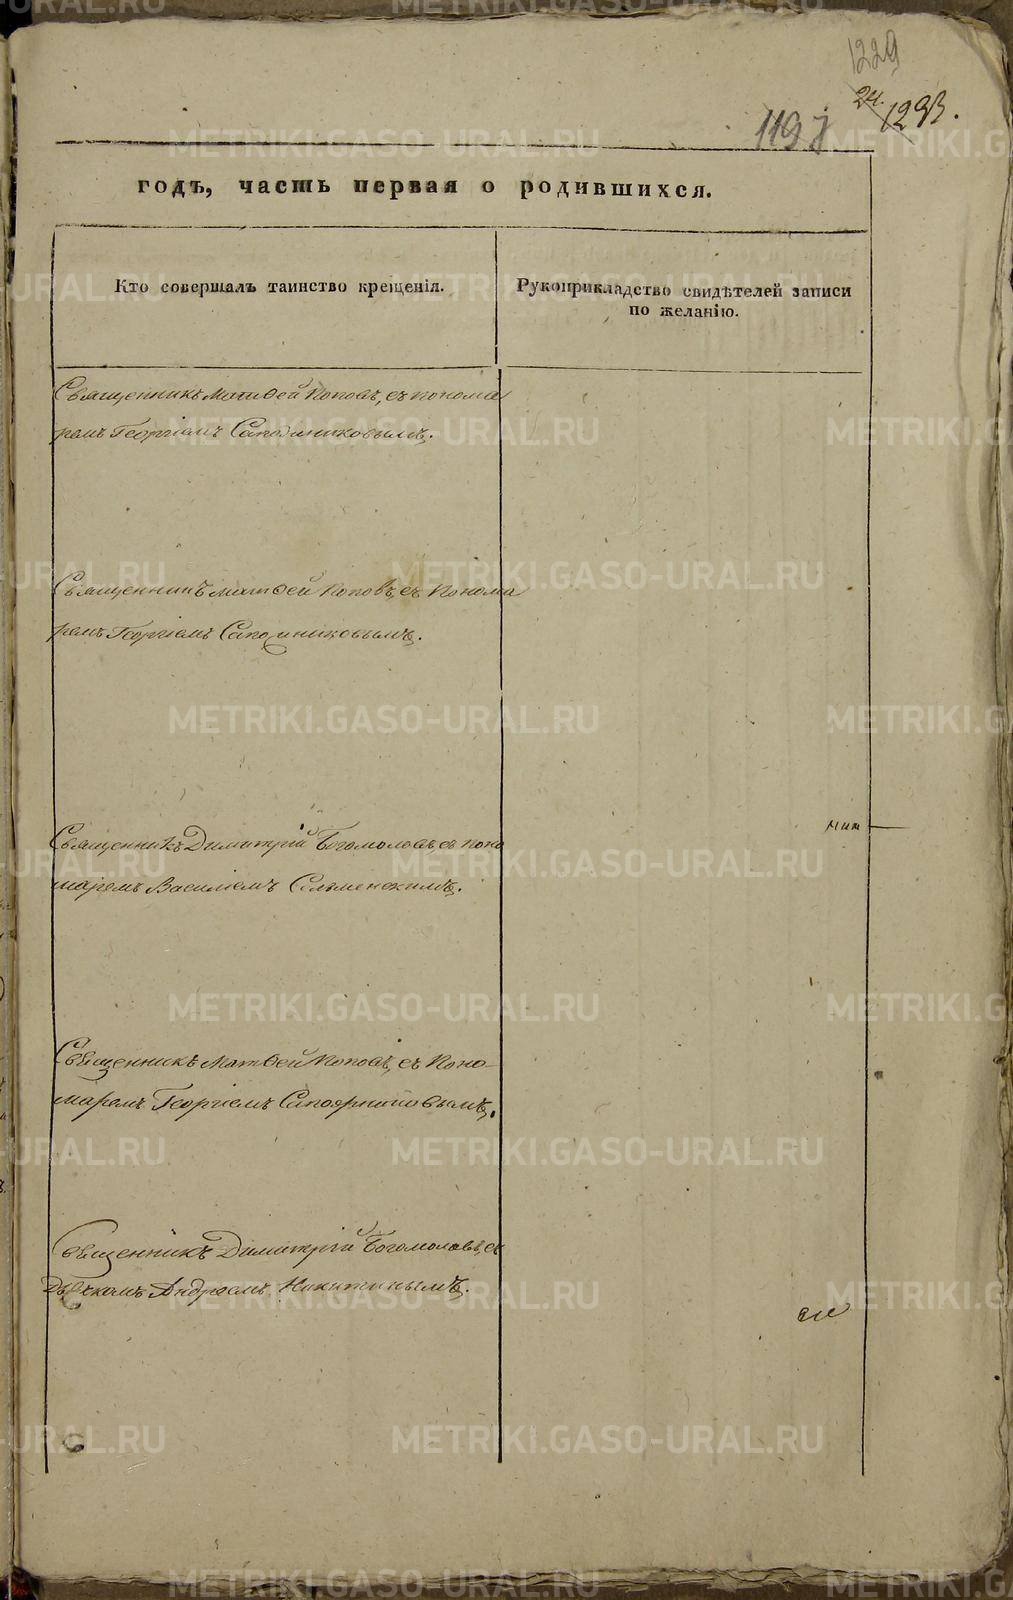 1229
24.
1293.
119
годъ, часть первая о родившихся.
Кто совершалъ таинство крещенія.
Рукоприкладство свидѣтелей записи
по желанію.
Священникъ Матѳей Поповъ, съ понома
ремъ Георгіемъ Сапожниковымъ.
Священникъ Матѳей Поповъ, съ Понома
ремъ Георгіемъ Сапожниковымъ.
Священникъ Димитрій Богомоловъ, съ поно
маремъ Василіемъ Сельменскимъ.
Священникъ Матѳей Поповъ, съ Поно-
маремъ Георгіемъ Сапожниковымъ.
Священникъ Димитрій Богомоловъ, съ
Дьячкомъ Андреемъ Никитинымъ.
METRIKI.GASO-URAL.RU